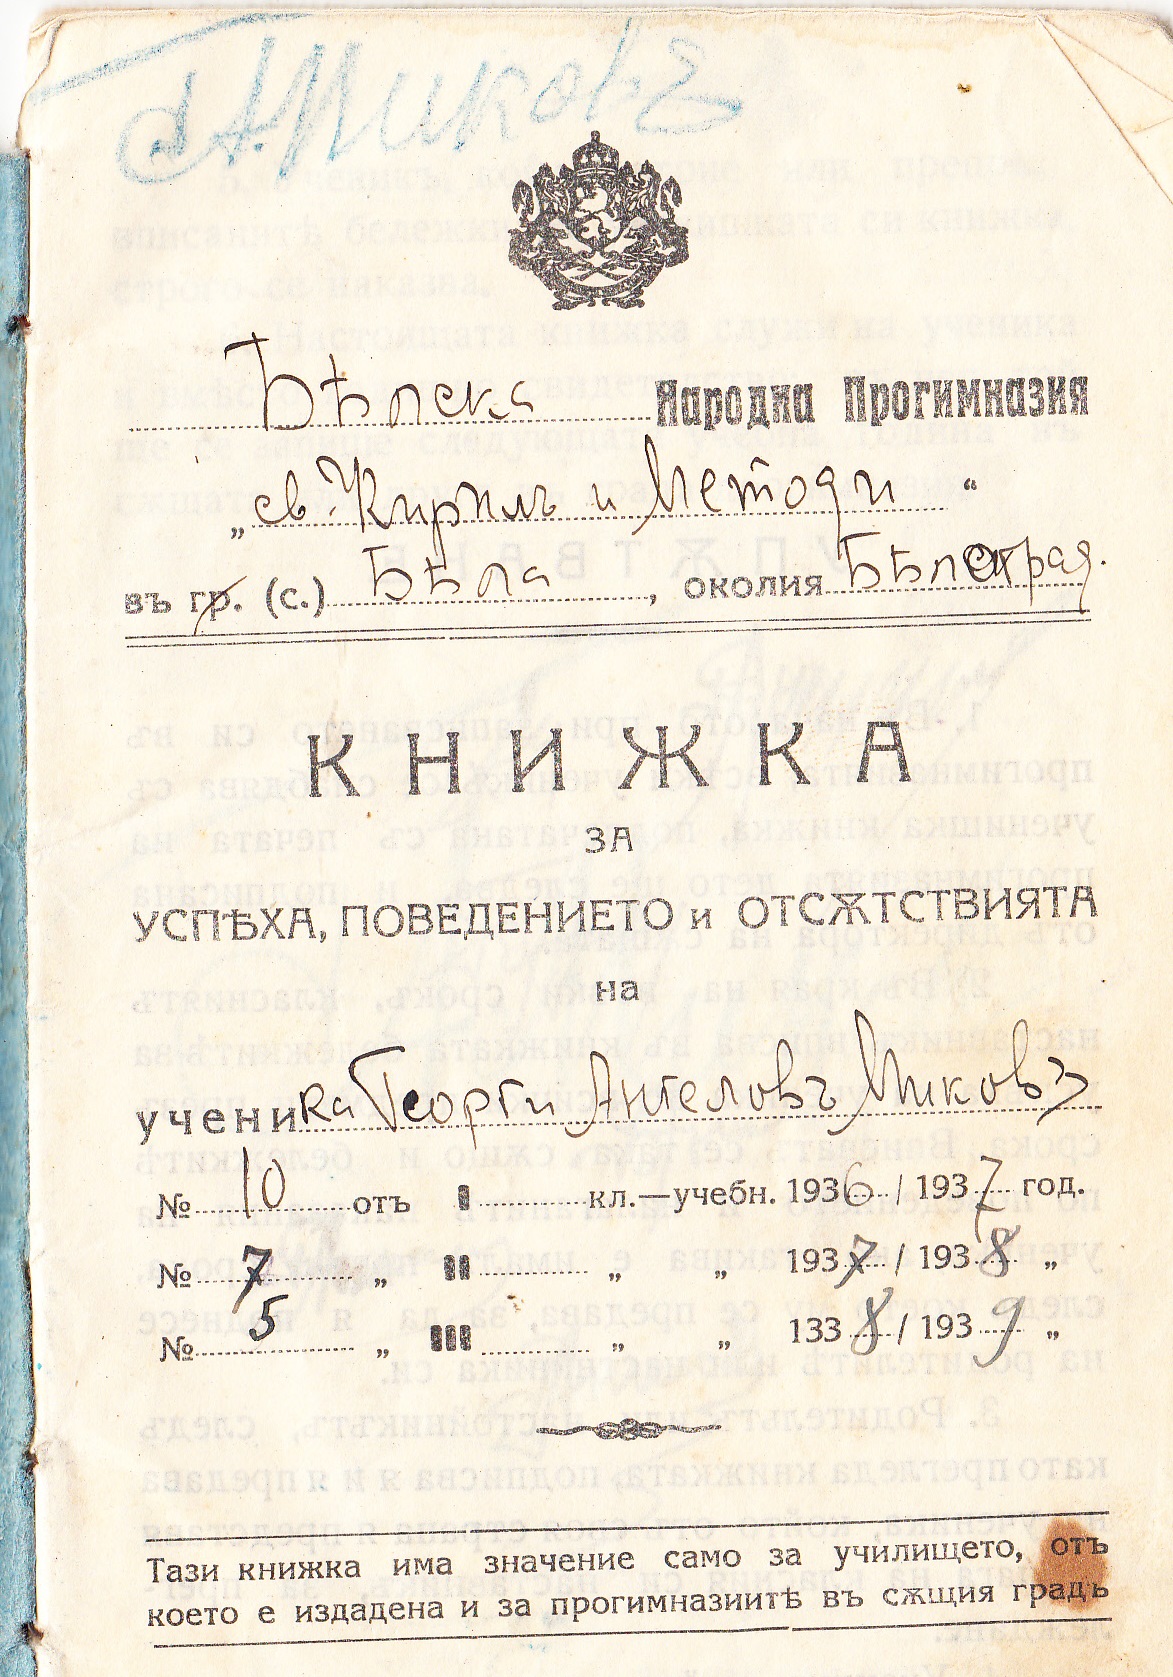 А. Миковъ
Бѣлска Народна Прогимназия
„св. Кирилъ и Методи“
въ гр. (с.) Бѣла, околия Бѣлоград.
КНИЖКА
ЗА
УСПѢХА, ПОВЕДЕНИЕТО и ОТСѪТСТВИЯТА
на
ученика Георги Ангеловъ Миковъ
№ 10 отъ I кл.—учебн. 1936 / 1937 год.
№ 7 „ II „ „ 1937 / 1938 „
№ 5 „ III „ „ 1338 / 1939 „
Тази книжка има значение само за училището, отъ
което е издадена и за прогимназиитѣ въ сѫщия градъ